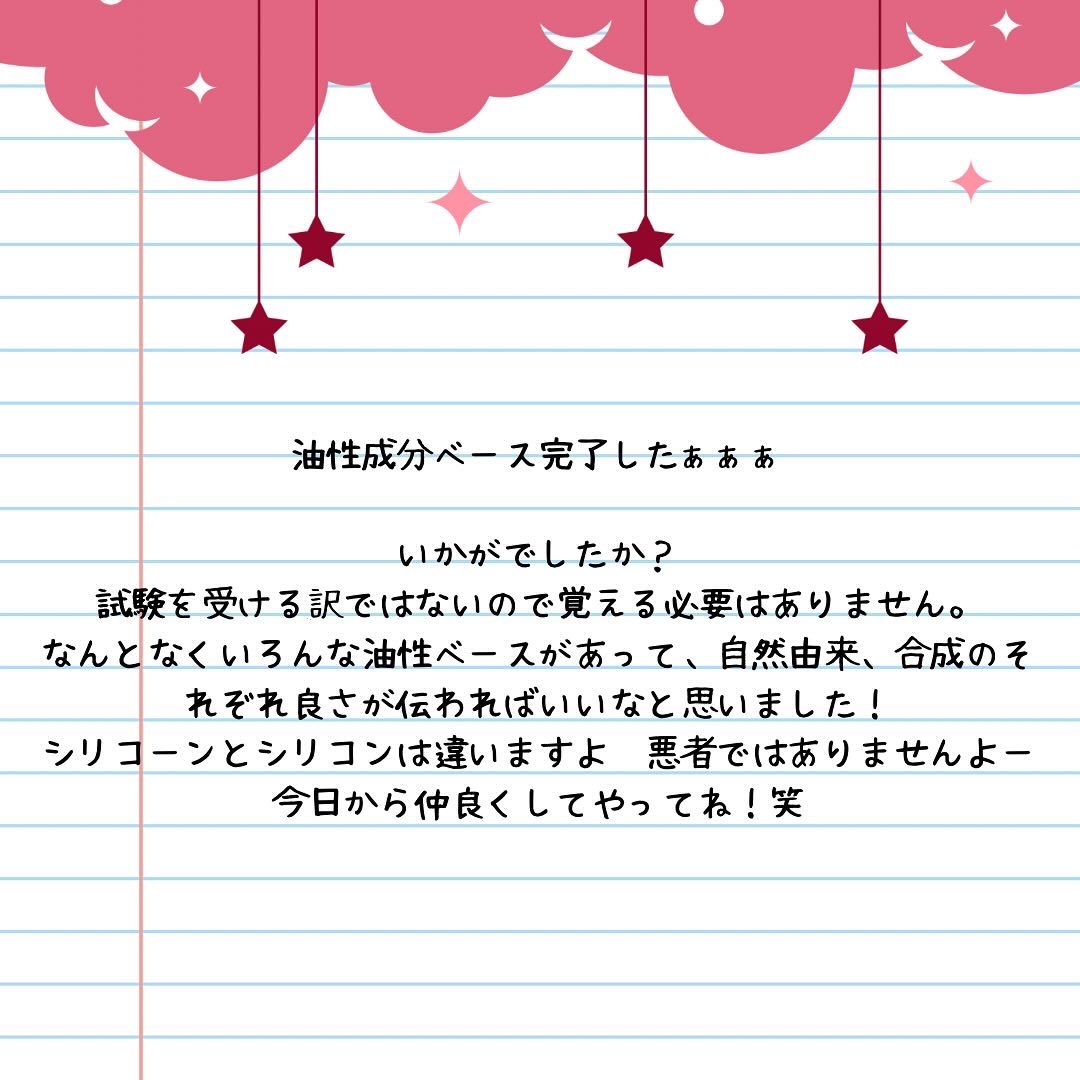 油性成分ベース完了したぁぁぁ
いかがでしたか？
試験を受ける訳ではないので覚える必要はありません。
なんとなくいろんな油性ベースがあって、自然由来、合成のそ
れぞれ良さが伝わればいいなと思いました！
シリコーンとシリコンは違いますよ　悪者ではありませんよー
今日から仲良くしてやってね！笑